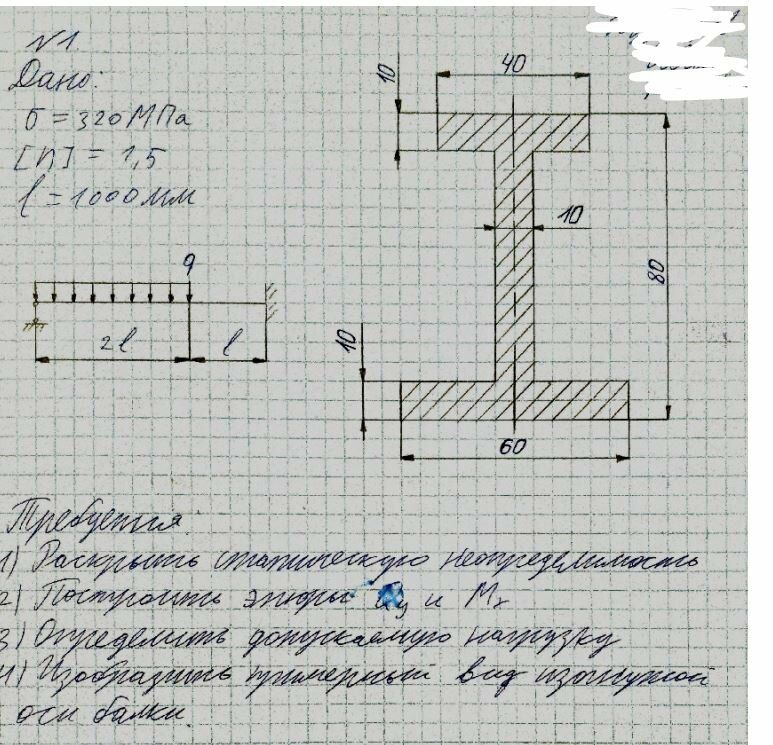 №1
Дано:
σ = 320 МПа
[n] = 1,5
l = 1000 мм
q
2l
l
10
40
10
80
10
60
Требуется
1) Раскрыть статическую неопределимость
2) Построить эпюры Qy и Mx
3) Определить допускаемую нагрузку
4) Изобразить примерный вид изогнутой
оси балки.